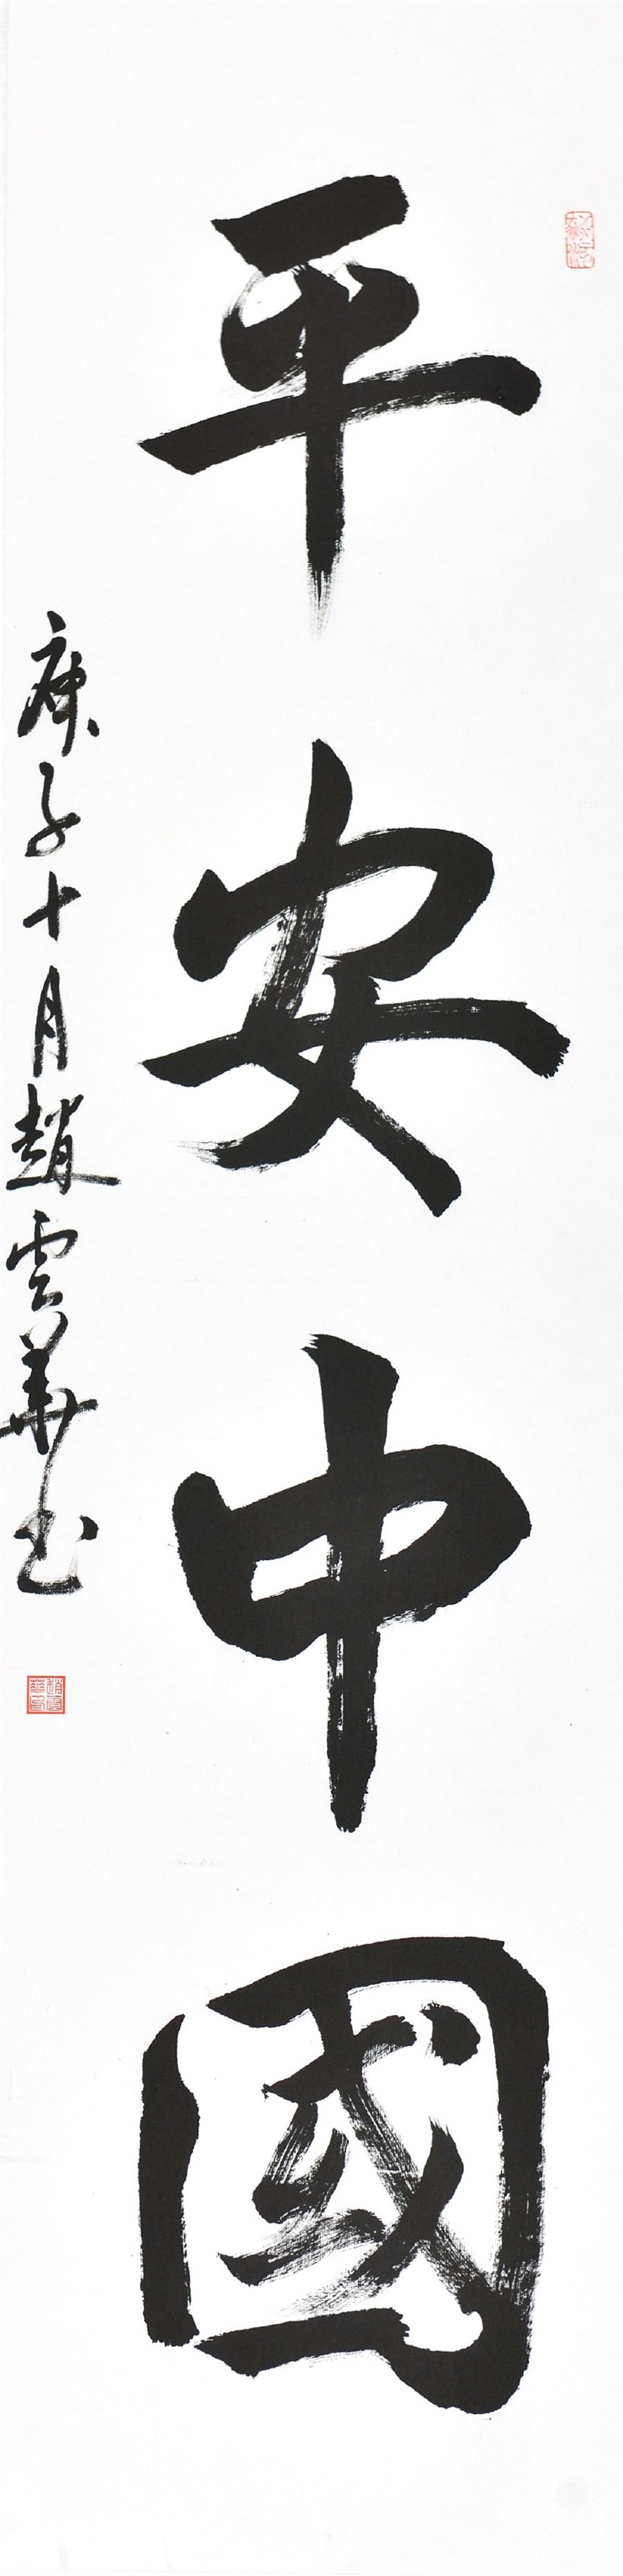 平安中國
庚子十月趙雲華书